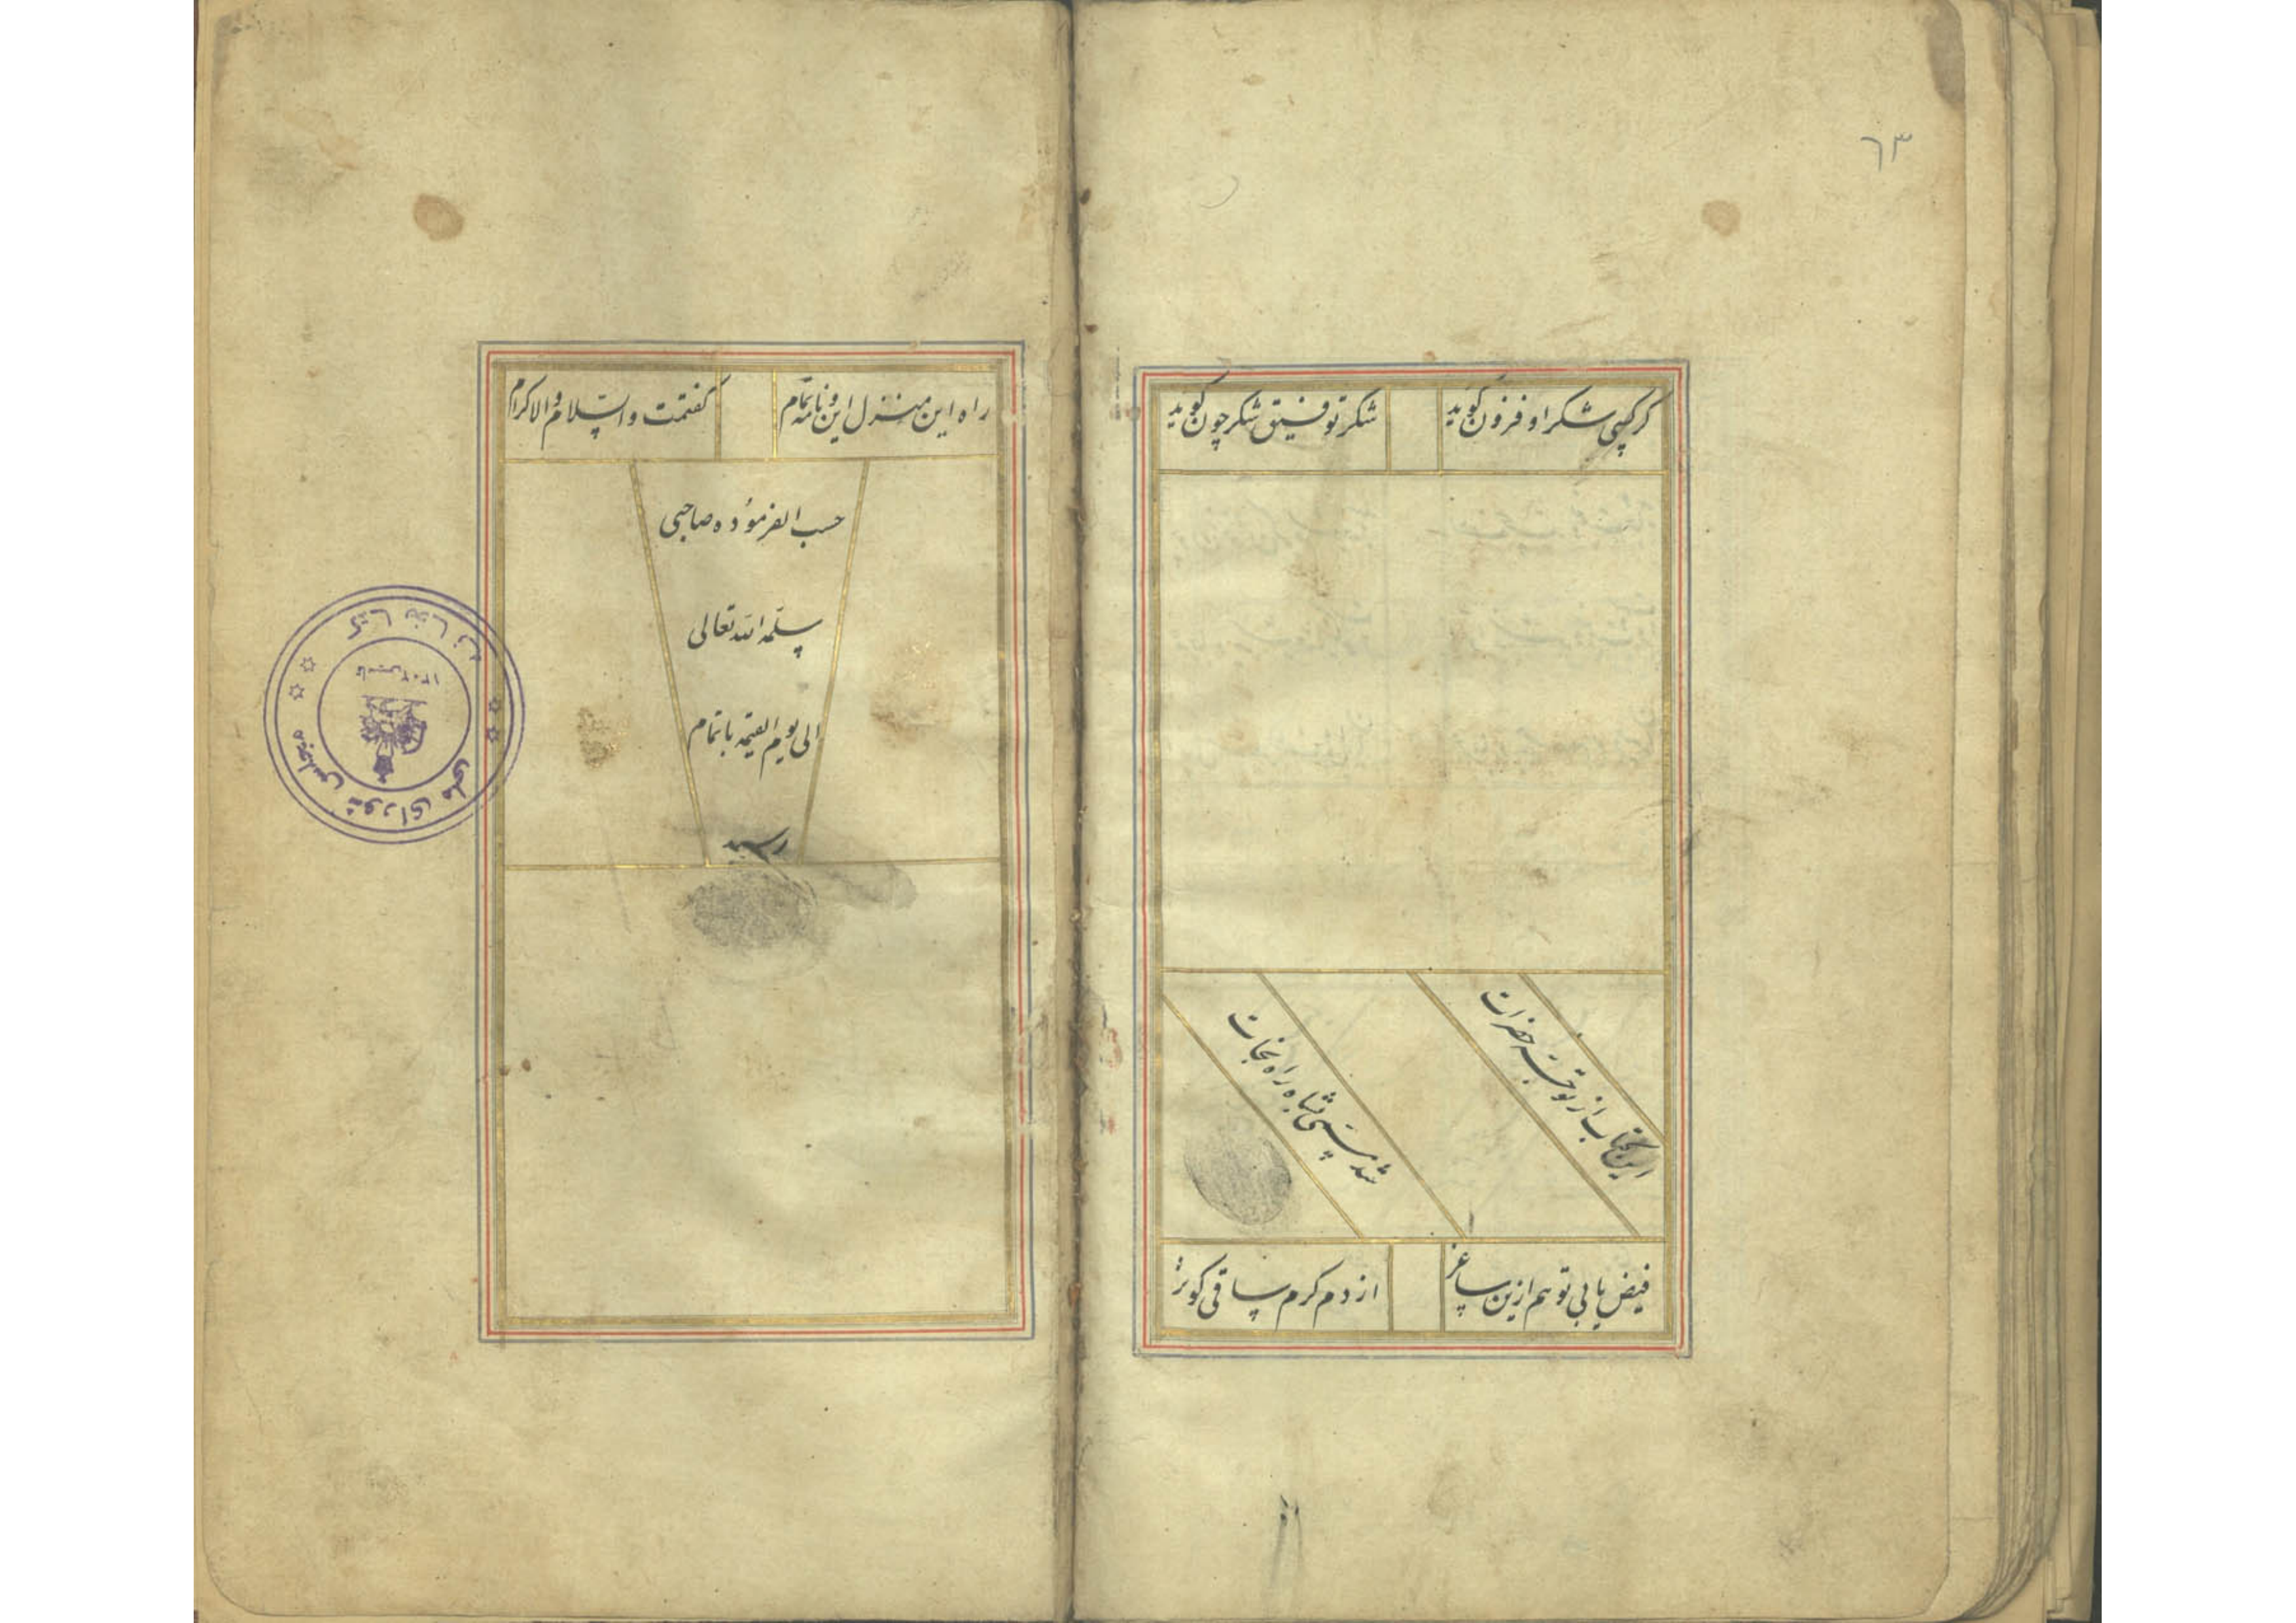 ٦٣
گر کسی شکر او فزون گوید
شکر توفیق شکر چون گوید
این کتاب از توجه حضرات
شد پسی شاه راه نجات
فیض یابی تو هم ازین ساغر
از دم کرم ساقی کوثر
راه این منزل این و نامه تمام
گفتمت والسلام والاکرام
حسب الفرموده صاحبی
سلمه الله تعالی
الی یوم القیمه باتمام
رسید
کتابخانه
مجلس شورای ملی
تاسیس ۱۳۰۲